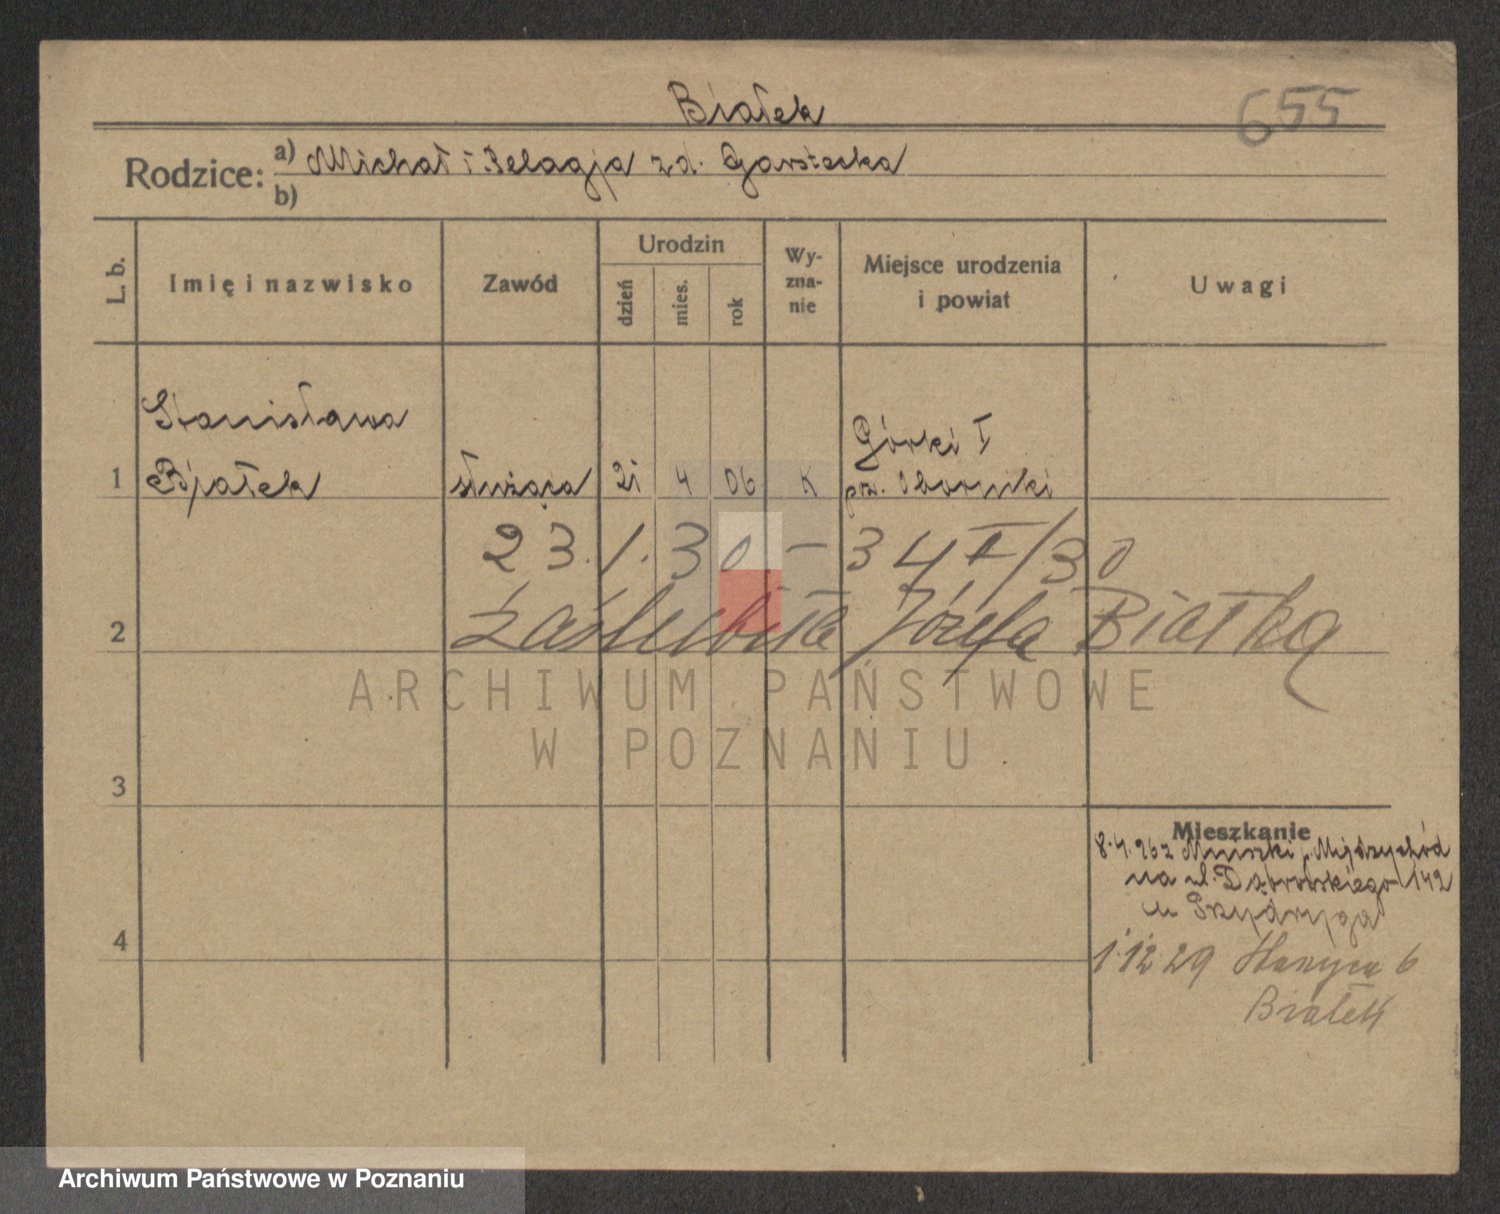 Białek
655
Rodzice: a) Michał i Pelagja zd. Garstecka
b)
L. b. Imię i nazwisko Zawód Urodzin dzień mies. rok Wy-zna-nie Miejsce urodzenia i powiat Uwagi
Stanisława Górki I
1 Białek służąca 21 4 06 K pow. Oborniki
23.1.30.- 34 I/30
2 zaślubiła Józefa Białka
3
Mieszkanie
8.4.26 z Międzychód
na ul. Dąbrowskiego 142
u
4
1.12 29 6
Białek
ARCHIWUM PAŃSTWOWE
W POZNANIU
Archiwum Państwowe w Poznaniu